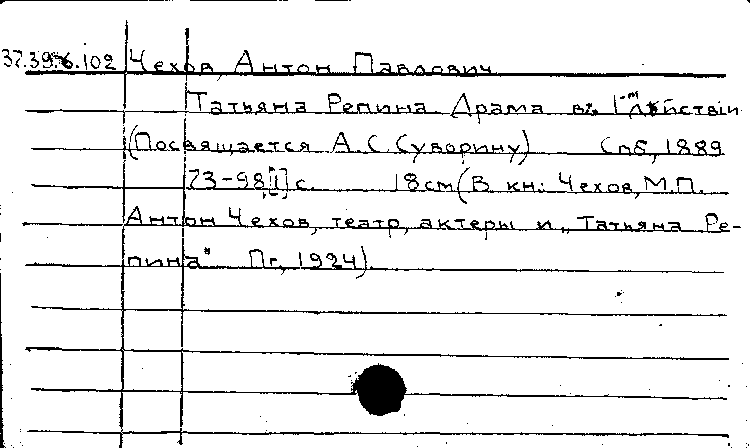 37.39.6.102 Чехов, Антон Павлович
Татьяна Репина. Драма въ 1-м дѣйствіи
(Посвящается А.С.Суворину) Спб, 1889
73-98[1] с. 18см (В кн: Чехов, М.П.
Антон Чехов, театр, актеры и „Татьяна Ре-
пина" Пг, 1924).